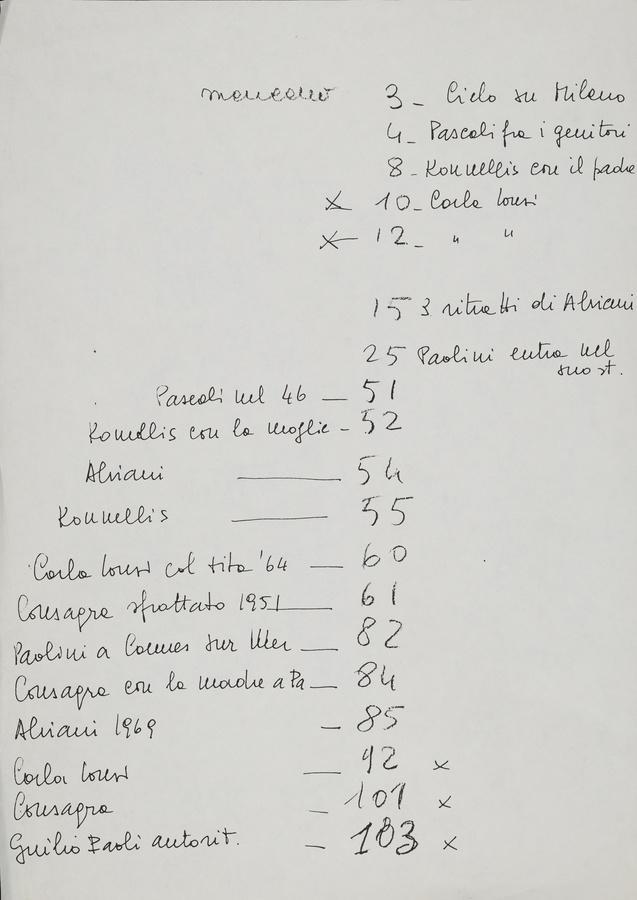 mancano 3 - Cielo su Milano
4 - Pascali fra i genitori
8 - Kounellis con il padre
x 10 - Carla Lonzi
x 12 - " "
15 3 ritratti di Alviani
25 Paolini entra nel
suo st.
Pascali nel 46 — 51
Kounellis con la moglie - 52
Alviani — 54
Kounellis — 55
Carla Lonzi col tita '64 — 60
Consagra sfrattato 1951 — 61
Paolini a Cannes sur Mer — 82
Consagra con la madre a Pa — 84
Alviani 1969 — 85
Carla Lonzi — 92 x
Consagra — 101 x
Guilio Paoli autorit. — 103 x